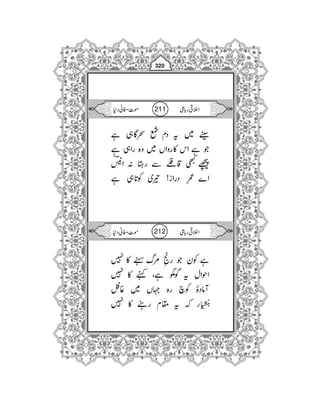 320
اخلاقی رباعی 211 موت-فانی دنیا
سینے میں یہ دم شمع سحرگاہی ہے
جو ہے اس کارواں میں وہ راہی ہے
پیچھے کبھی قافلے سے رہتا نہ انیسؔ
اے عمرِ دراز! تیری کوتاہی ہے
اخلاقی رباعی 212 موت-فانی دنیا
ہے کون جو رنجِ مرگ سہنے کا نہیں
احوال یہ گو گو ہے، کہنے کا نہیں
آمادۂ کوچ رہ جہاں میں غافل
ہشیار کہ یہ مقام رہنے کا نہیں